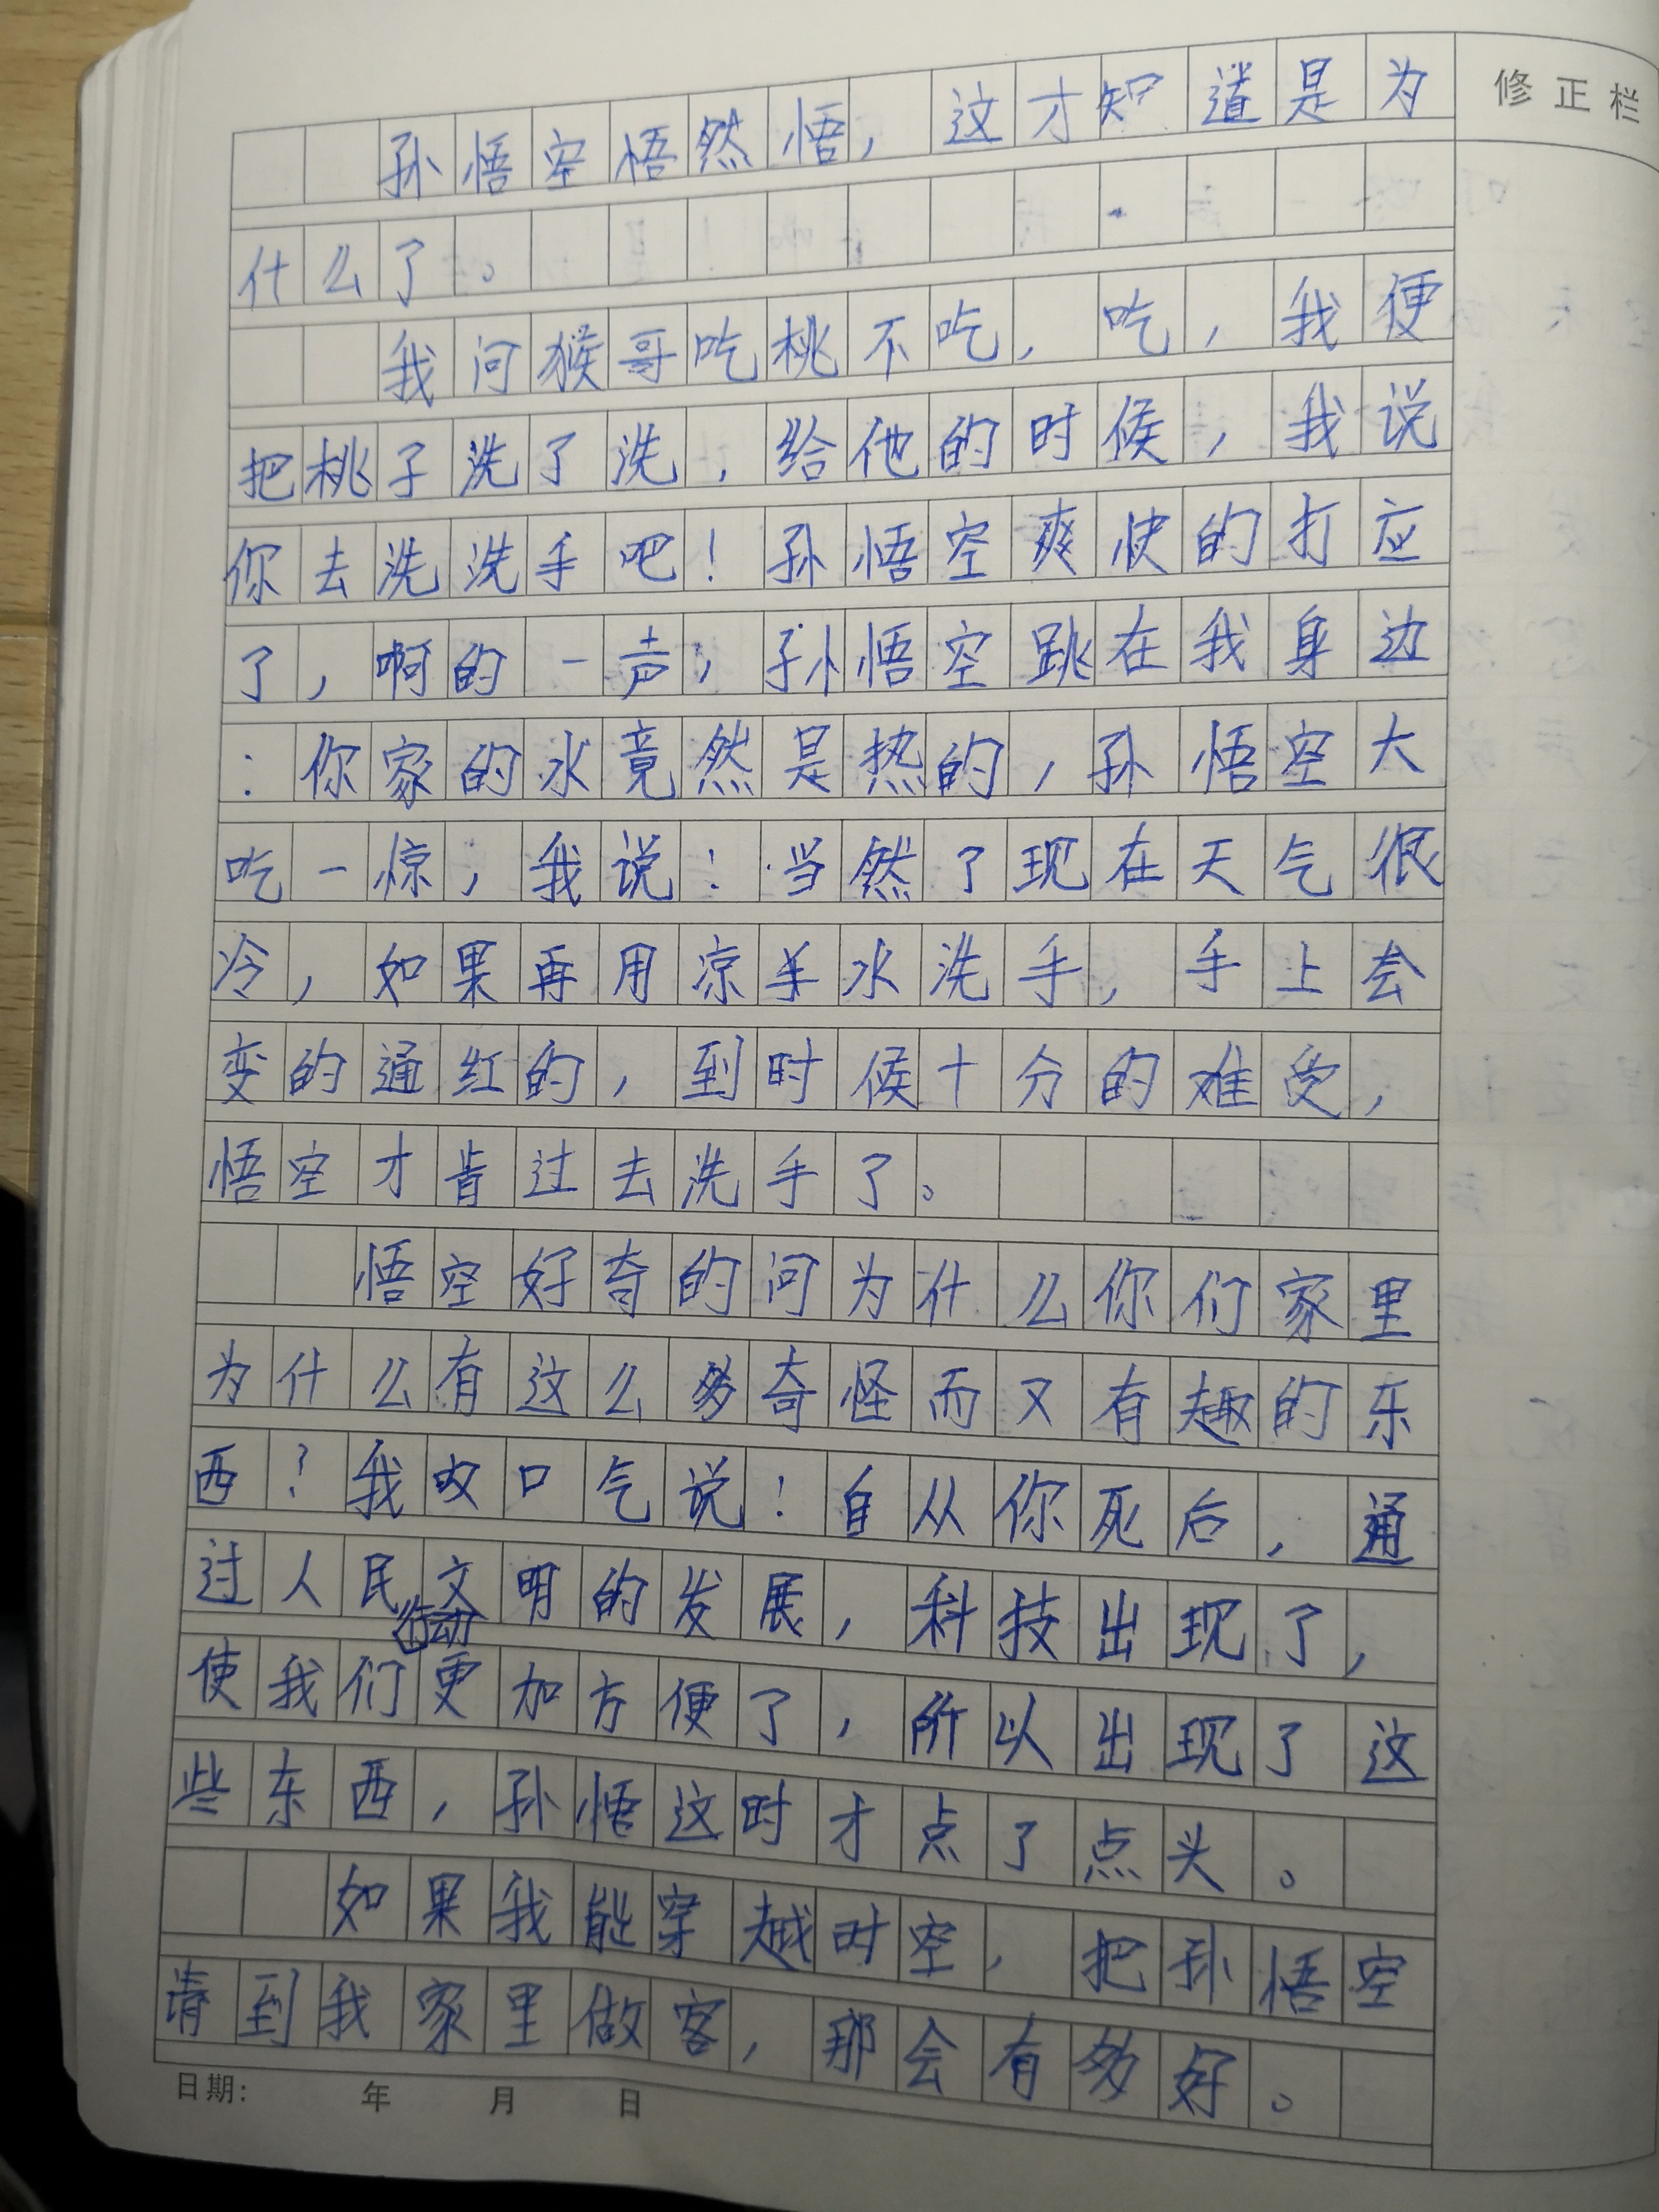 修正栏
孙悟空悟然悟，这才知道是为
什么了。
我问猴哥吃桃不吃，吃，我便
把桃子洗了洗，给他的时候，我说
你去洗洗手吧！孙悟空爽快的打应
了，啊的一声，孙悟空跳在我身边
：你家的水竟然是热的，孙悟空大
吃一惊，我说：当然了现在天气很
冷，如果再用凉水洗手，手上会
变的通红的，到时候十分的难受，
悟空才肯过去洗手了。
悟空好奇的问为什么你们家里
为什么有这么多奇怪而又有趣的东
西？我叹口气说：自从你死后，通
过人民文明的发展，科技出现了，
使我们活动更加方便了，所以出现了这
些东西，孙悟这时才点了点头。
如果我能穿越时空，把孙悟空
请到我家里做客，那会有多好。
日期： 年 月 日